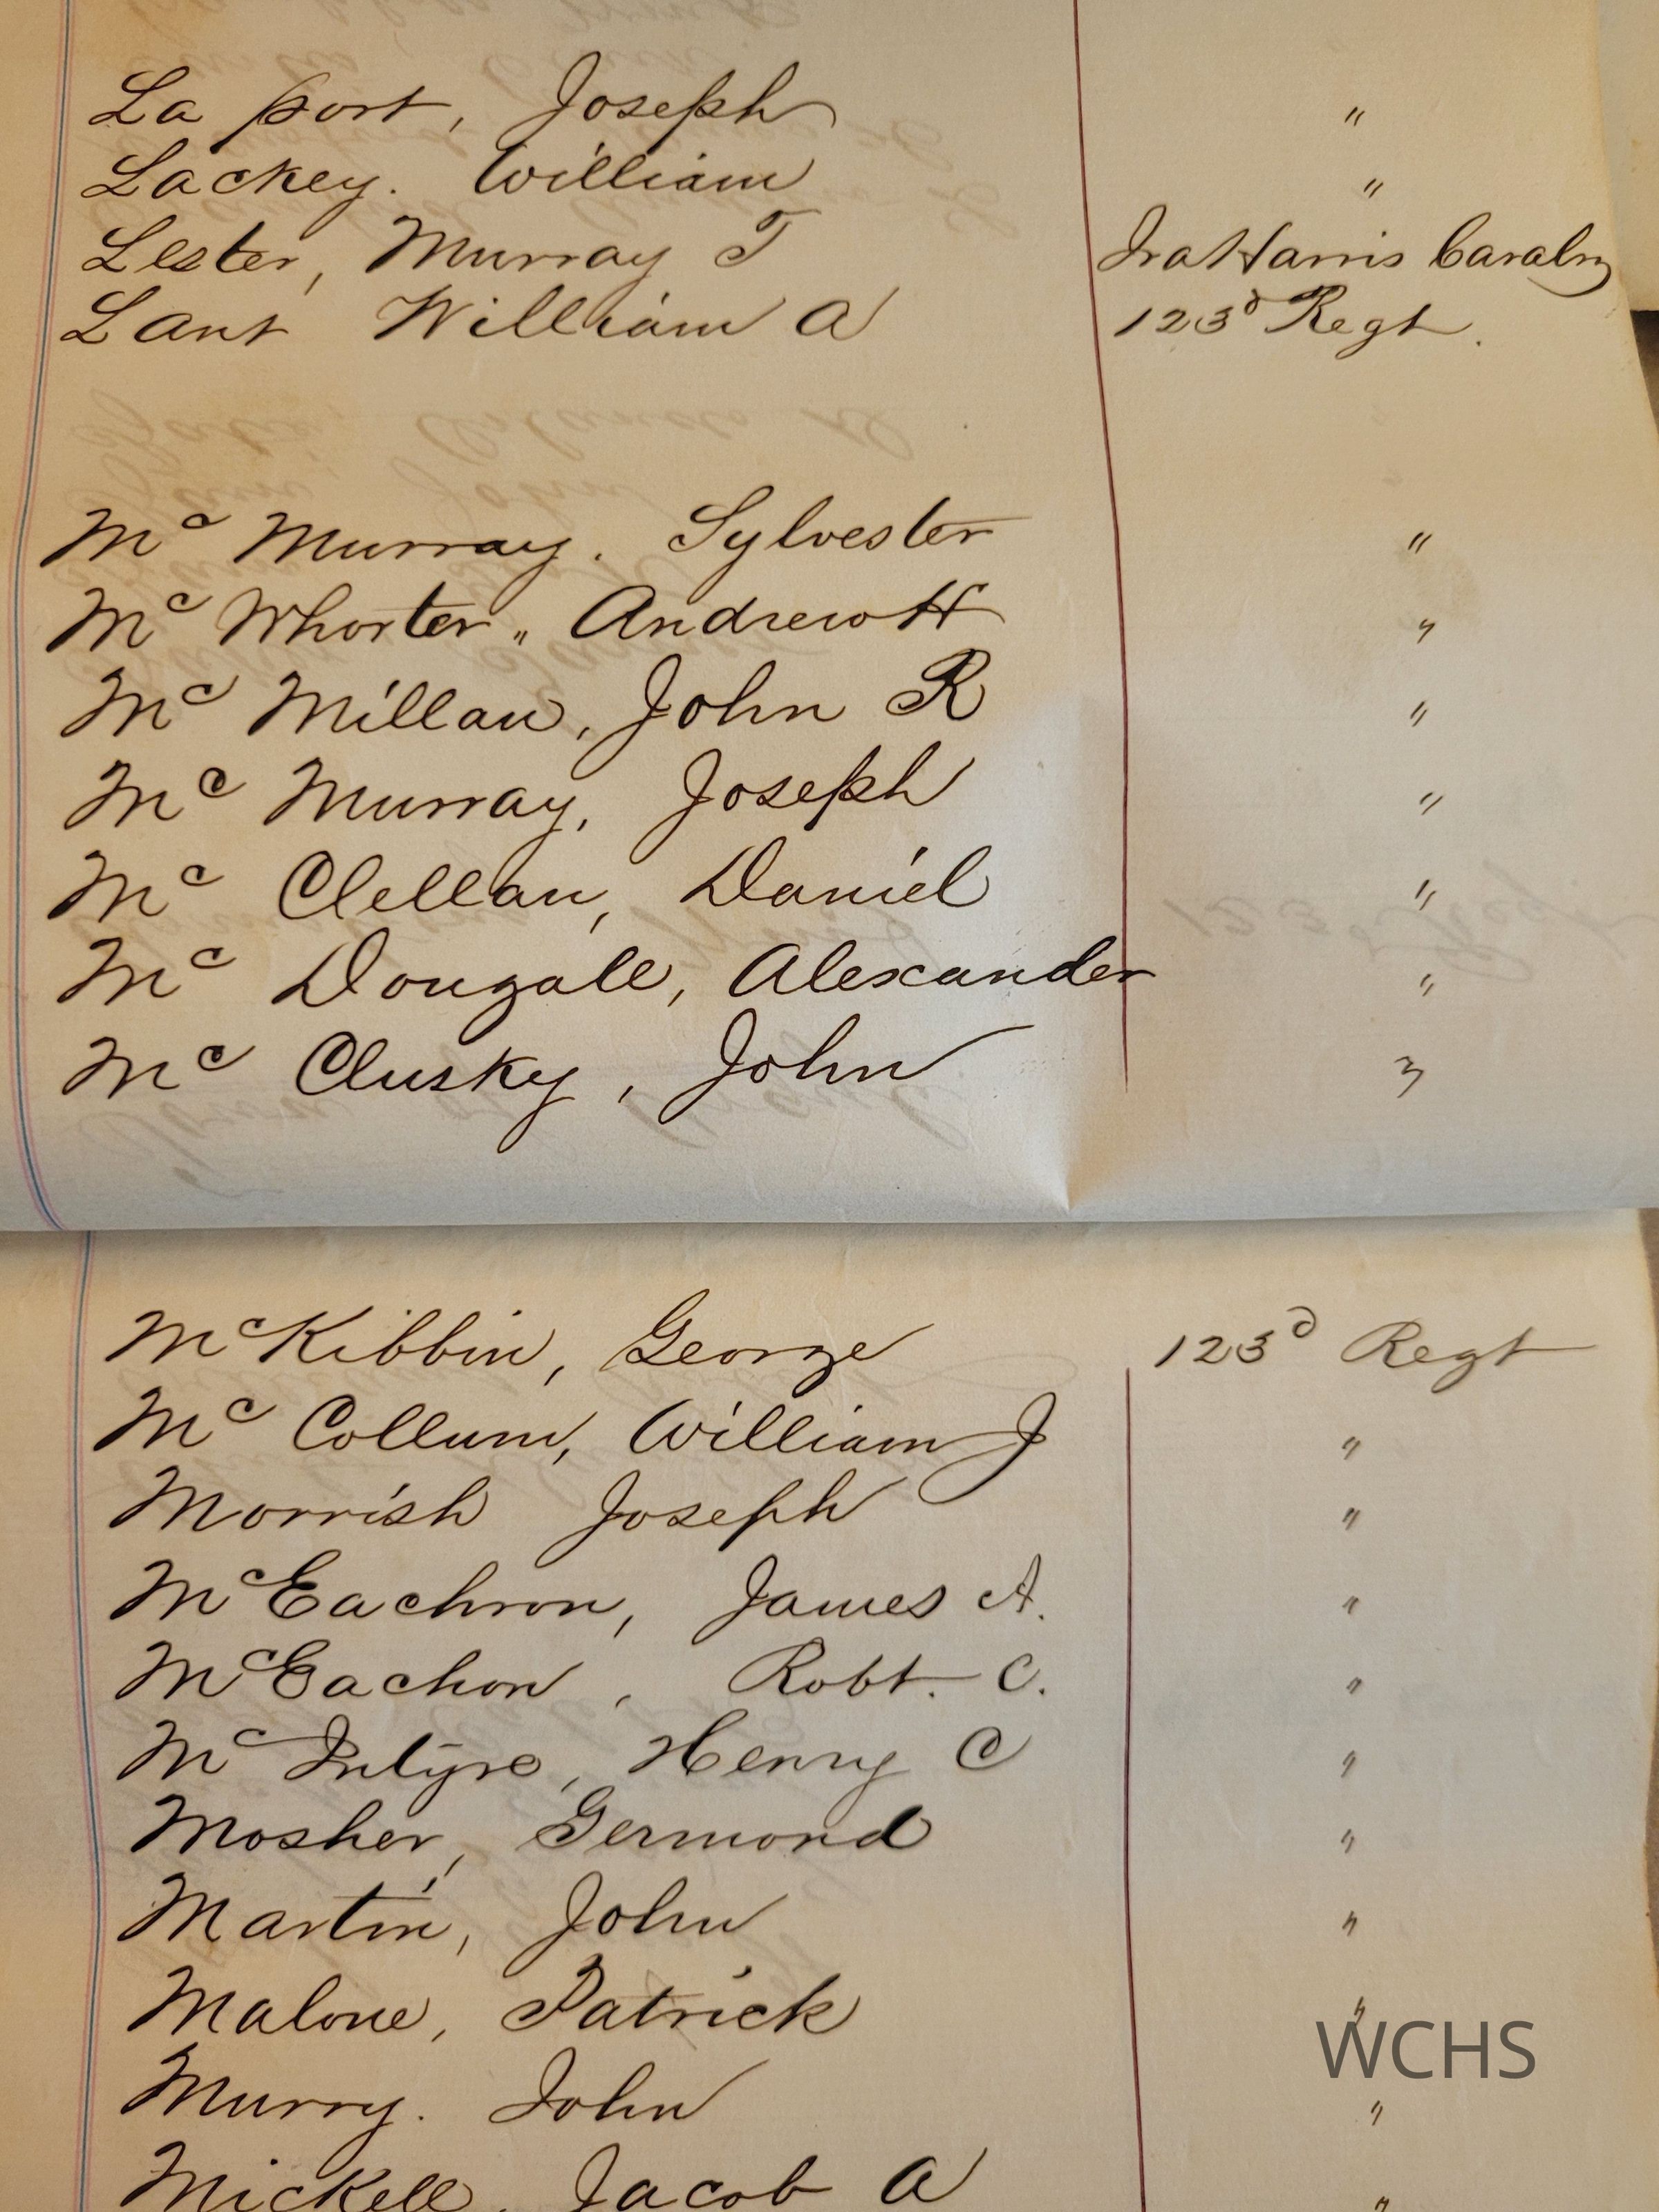 La port, Joseph "
Lackey. William "
Lester, Murray T Ira Harris Cavalry
Lant William A 123d Regt.
Mc Murray. Sylvester "
Mc Whorter,, Andrew H "
Mc Millan, John R "
Mc Murray, Joseph "
Mc Clellan, Daniel "
Mc Dougall, Alexander "
Mc Clusky, John "
McKibbin, George 123d Regt
Mc Collum, William J "
Morrish Joseph "
McEachron, James A. "
McEachon, Robt. C. "
Mc Intyre, Henry C "
Mosher, Germond "
Martin, John "
Malone, Patrick "
WCHS
Murry. John "
Mickell, Jacob A "